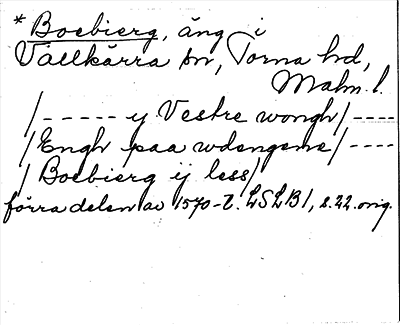 * Boebierg, äng i
Vallkärra sn, Torna hd,
Malm. l.
/----- y Vestre wongh/----
/Engh paa wdengene/----
/ Boebierg ij less/
förra delen av 1570-t. LSLB 1, s. 22. orig.